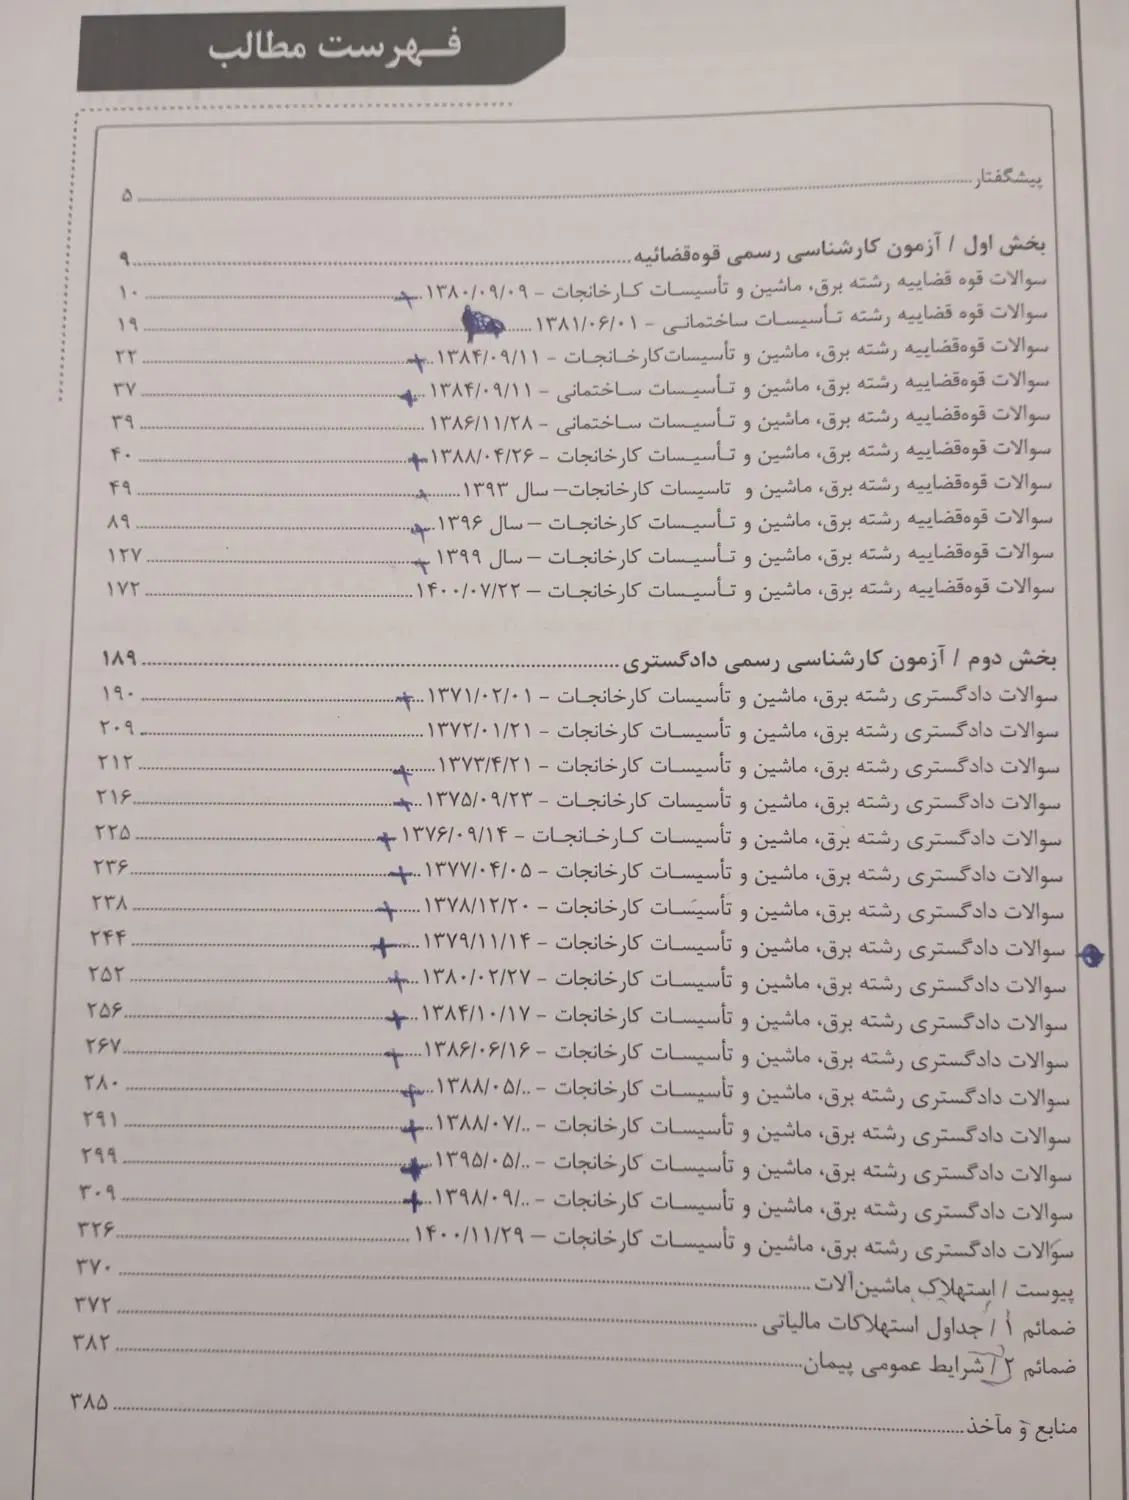 فهرست مطالب
پیشگفتار ۵
بخش اول / آزمون کارشناسی رسمی قوه‌قضائیه ۹
سوالات قوه قضاییه رشته برق، ماشین و تأسیسات کارخانجات - ۱۳۸۰/۰۹/۰۹ ۱۰
سوالات قوه قضاییه رشته تأسیسات ساختمانی - ۱۳۸۱/۰۶/۰۱ ۱۹
سوالات قوه‌قضاییه رشته برق، ماشین و تأسیسات کارخانجات - ۱۳۸۴/۰۹/۱۱ ۲۲
سوالات قوه‌قضاییه رشته برق، ماشین و تأسیسات ساختمانی - ۱۳۸۴/۰۹/۱۱ ۳۷
سوالات قوه‌قضاییه رشته برق، ماشین و تأسیسات ساختمانی - ۱۳۸۶/۱۱/۲۸ ۳۹
سوالات قوه‌قضاییه رشته برق، ماشین و تأسیسات کارخانجات - ۱۳۸۸/۰۴/۲۶ ۴۰
سوالات قوه‌قضاییه رشته برق، ماشین و تاسیسات کارخانجات– سال ۱۳۹۳ ۴۹
سوالات قوه‌قضاییه رشته برق، ماشین و تأسیسات کارخانجات – سال ۱۳۹۶ ۸۹
سوالات قوه‌قضاییه رشته برق، ماشین و تأسیسات کارخانجات – سال ۱۳۹۹ ۱۲۷
سوالات قوه‌قضاییه رشته برق، ماشین و تأسیسات کارخانجات – ۱۴۰۰/۰۷/۲۲ ۱۷۲
بخش دوم / آزمون کارشناسی رسمی دادگستری ۱۸۹
سوالات دادگستری رشته برق، ماشین و تأسیسات کارخانجات - ۱۳۷۱/۰۲/۰۱ ۱۹۰
سوالات دادگستری رشته برق، ماشین و تأسیسات کارخانجات - ۱۳۷۲/۰۱/۲۱ ۲۰۹
سوالات دادگستری رشته برق، ماشین و تأسیسات کارخانجات - ۱۳۷۳/۴/۲۱ ۲۱۲
سوالات دادگستری رشته برق، ماشین و تأسیسات کارخانجات - ۱۳۷۵/۰۹/۲۳ ۲۱۶
سوالات دادگستری رشته برق، ماشین و تأسیسات کارخانجات - ۱۳۷۶/۰۹/۱۴ ۲۲۵
سوالات دادگستری رشته برق، ماشین و تأسیسات کارخانجات - ۱۳۷۷/۰۴/۰۵ ۲۳۶
سوالات دادگستری رشته برق، ماشین و تأسیسات کارخانجات - ۱۳۷۸/۱۲/۲۰ ۲۳۸
سوالات دادگستری رشته برق، ماشین و تأسیسات کارخانجات - ۱۳۷۹/۱۱/۱۴ ۲۴۴
سوالات دادگستری رشته برق، ماشین و تأسیسات کارخانجات - ۱۳۸۰/۰۲/۲۷ ۲۵۲
سوالات دادگستری رشته برق، ماشین و تأسیسات کارخانجات - ۱۳۸۴/۱۰/۱۷ ۲۵۶
سوالات دادگستری رشته برق، ماشین و تأسیسات کارخانجات - ۱۳۸۶/۰۶/۱۶ ۲۶۷
سوالات دادگستری رشته برق، ماشین و تأسیسات کارخانجات - ../۱۳۸۸/۰۵ ۲۸۰
سوالات دادگستری رشته برق، ماشین و تأسیسات کارخانجات - ../۱۳۸۸/۰۷ ۲۹۱
سوالات دادگستری رشته برق، ماشین و تأسیسات کارخانجات - ../۱۳۹۵/۰۵ ۲۹۹
سوالات دادگستری رشته برق، ماشین و تأسیسات کارخانجات - ../۱۳۹۸/۰۹ ۳۰۹
سوالات دادگستری رشته برق، ماشین و تأسیسات کارخانجات – ۱۴۰۰/۱۱/۲۹ ۳۲۶
پیوست / استهلاک ماشین‌آلات ۳۷۰
ضمائم ۱ / جداول استهلاکات مالیاتی ۳۷۲
ضمائم ۲ / شرایط عمومی پیمان ۳۸۲
منابع و مآخذ ۳۸۵